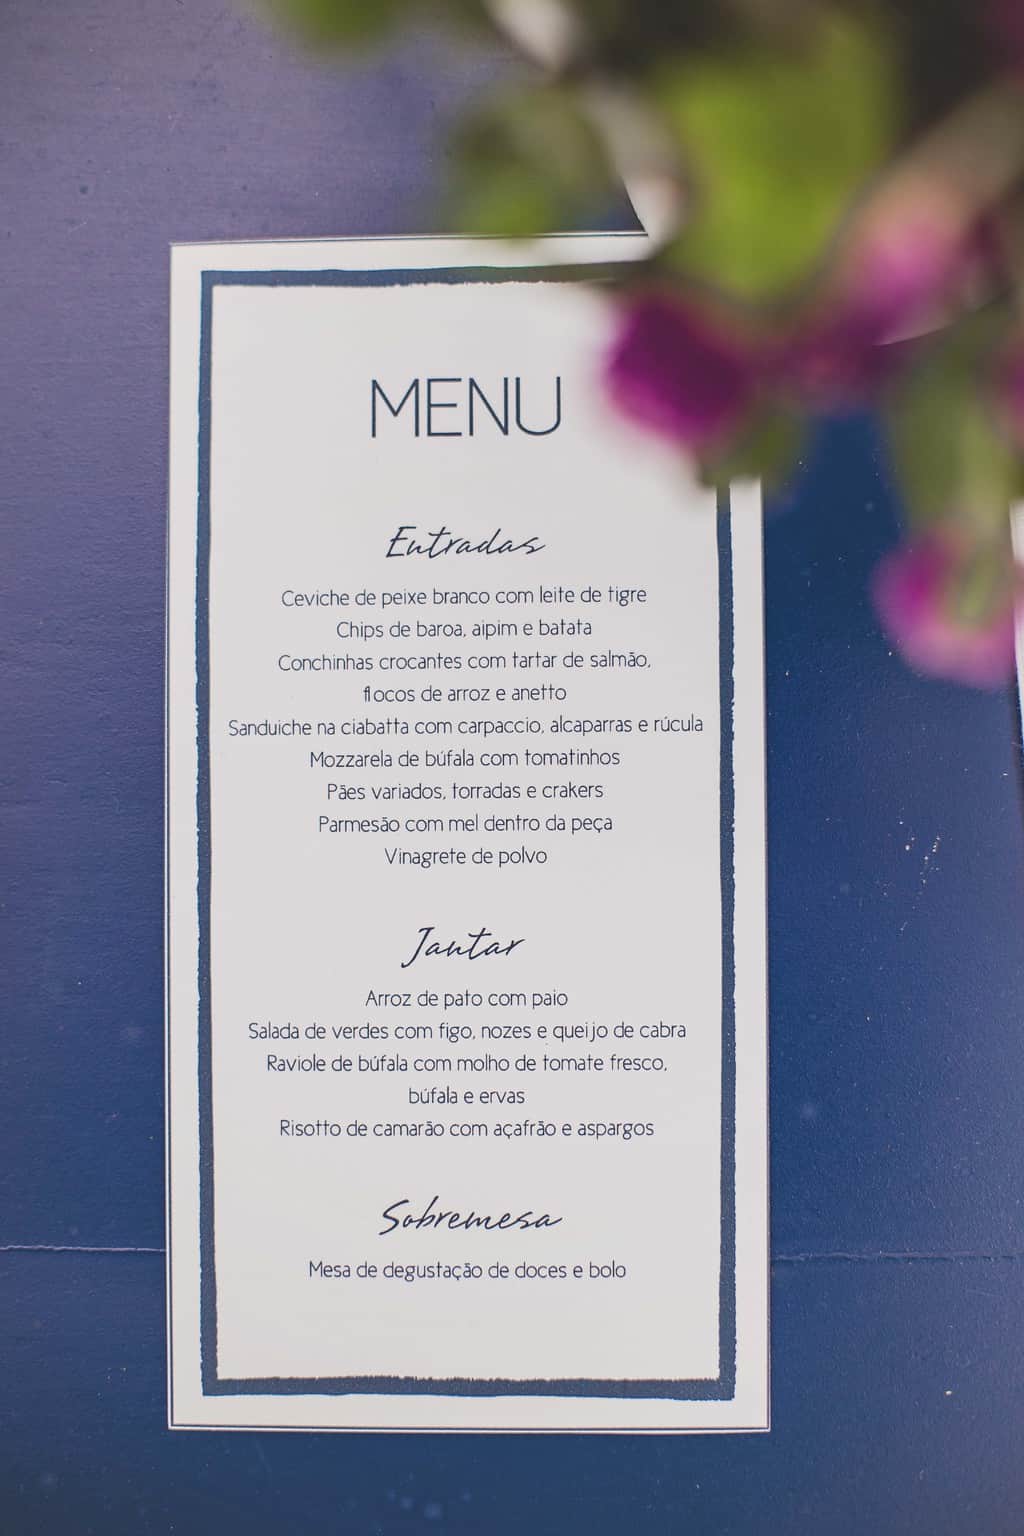 MENU
Entradas
Ceviche de peixe branco com leite de tigre
Chips de baroa, aipim e batata
Conchinhas crocantes com tartar de salmão,
flocos de arroz e anetto
Sanduiche na ciabatta com carpaccio, alcaparras e rúcula
Mozzarela de búfala com tomatinhos
Pães variados, torradas e crakers
Parmesão com mel dentro da peça
Vinagrete de polvo
Jantar
Arroz de pato com paio
Salada de verdes com figo, nozes e queijo de cabra
Raviole de búfala com molho de tomate fresco,
búfala e ervas
Risotto de camarão com açafrão e aspargos
Sobremesa
Mesa de degustação de doces e bolo